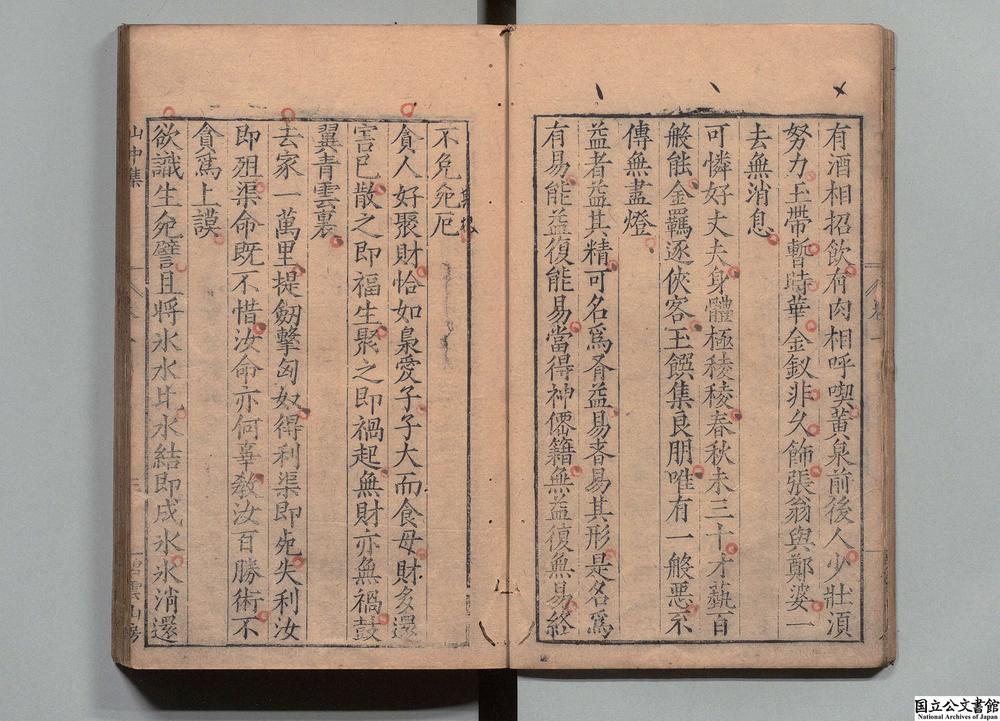 有酒相招飲有肉相呼喫黃泉前後人少壯湏
努力玉帶暫時華金釵非久飾張翁與鄭婆一
去無消息
可憐好丈夫身體極稜稜春秋未三十才藝百
般能金羈逐俠客玉饌集良朋唯有一般惡不
傳無盡燈
益者益其精可名爲有益易者易其形是名爲
有易能益復能易當得神僊籍無益復無易終
不免𣦸厄
貪人好聚財恰如梟愛子子大而食母財多還
害已散之即福生聚之即禍起無財亦無禍鼓
翼青雲裏
去家一萬里提劒擊匈奴得利渠即𣦸失利汝
即殂渠命既不惜汝命亦何辜敎汝百勝術不
貪爲上謨
欲識生𣦸譬且將氷水比水結即成氷氷消還
山中集
碧雲山房
国立公文書館
National Archives of Japan